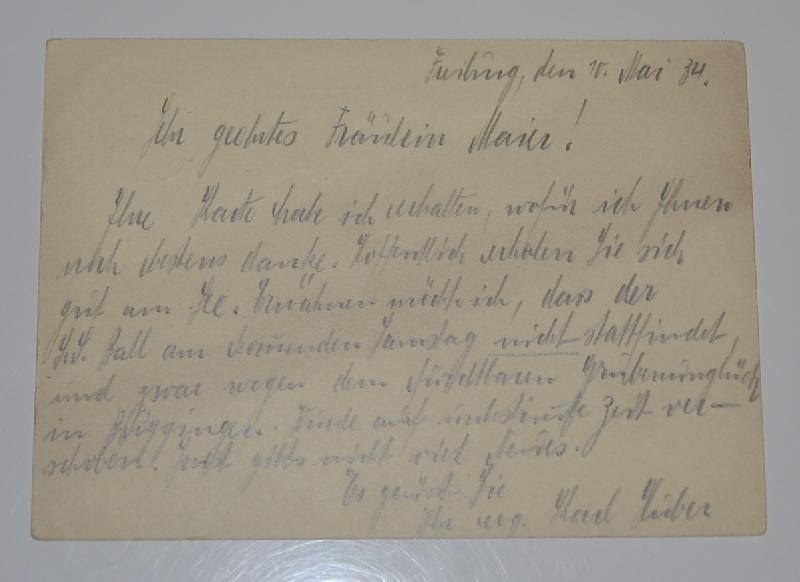 Freiburg, den 10. Mai 34.
Sehr geehrtes Fräulein Maier!
Ihre Karte habe ich erhalten, wofür ich Ihnen
noch bestens danke. Hoffentlich erholen Sie sich
gut am See. Erwähnen möcht ich, dass der
Ball am kommenden Samstag nicht stattfindet,
und zwar wegen dem furchtbaren Grubenunglück
in Buggingen. Wurde auf unbestimmte Zeit ver-
schoben. Sonst gibts nicht viel Neues.
Es grüsst Sie
Ihr erg. Karl Huber